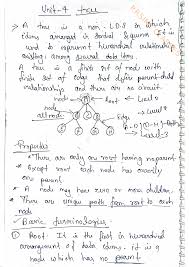 Unit-4 tree
→ A tree is a non-L.D.S in which
items arranged in sorted sequence. It is
used to represent hierarchical relationship
existing among several data items.
A tree is a finite set of node with
finite set of edge that define parent-child
relationship and there are no circuit.
node
Root
Level
Edge
Level-3
Properties
There are only one root having no parent
Except root each node has exactly
one parent
A node may has zero or more children.
There are unique path from root to each
node
Basic terminologies
① Root: It is the first in hierarchical
arrangement of data items. it is a
node which has no parent